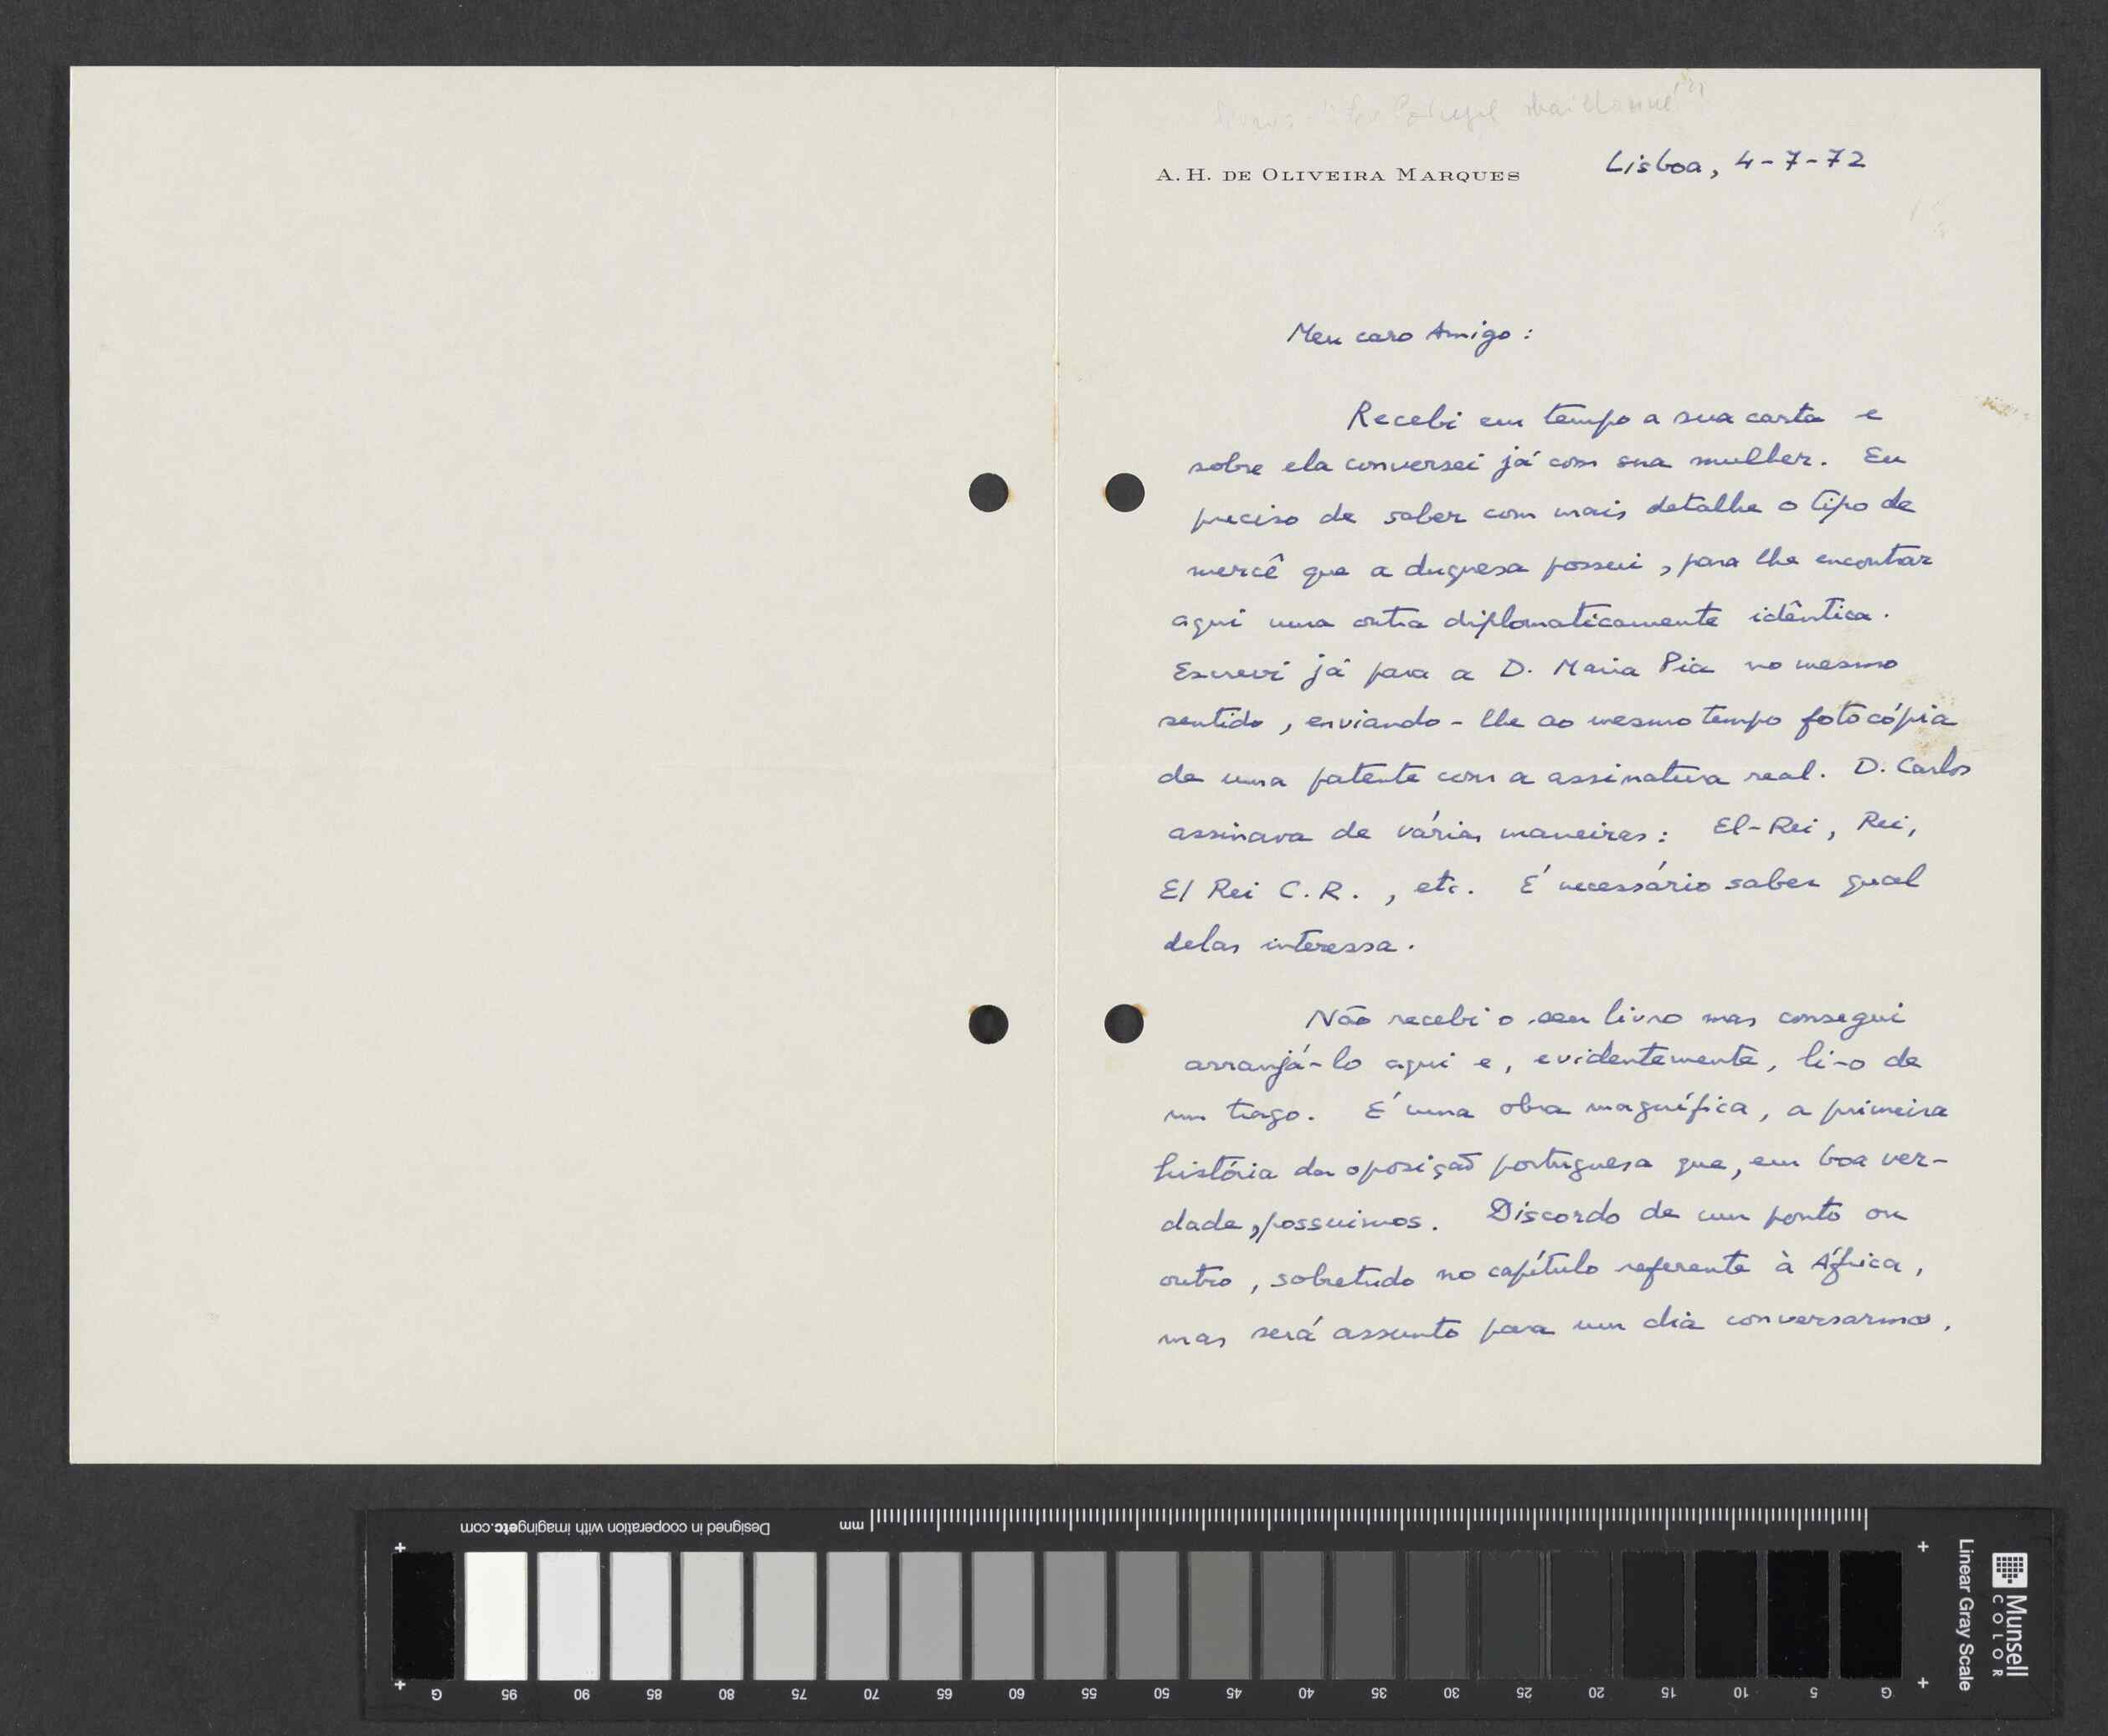 A. H. DE OLIVEIRA MARQUES
Lisboa, 4-7-72
Meu caro Amigo:
Recebi em tempo a sua carta e
sobre ela conversei já com sua mulher. Eu
preciso de saber com mais detalhe o tipo de
mercê que a duquesa possui, para lhe encontrar
aqui uma outra diplomaticamente idêntica.
Escrevi já para a D. Maria Pia no mesmo
sentido, enviando-lhe ao mesmo tempo fotocópia
de uma patente com a assinatura real. D. Carlos
assinava de várias maneiras: El-Rei, Rei,
El Rei C.R., etc. É necessário saber qual
delas interessa.
Não recebi o seu livro mas consegui
arranjá-lo aqui e, evidentemente, li-o de
um trago. É uma obra magnífica, a primeira
história da oposição portuguesa que, em boa ver-
dade, possuimos. Discordo de um ponto ou
outro, sobretudo no capítulo referente à África,
mas será assunto para um dia conversarmos.
Designed in cooperation with imagingetc.com
mm
G 95 90 85 80 75 70 65 60 55 50 45 40 35 30 25 20 15 10 5 G
Linear Gray Scale
Munsell
COLOR